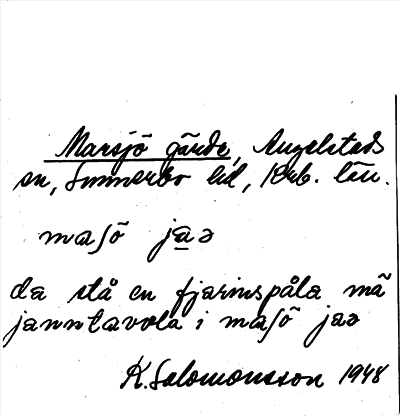 Marsjö gärde, Angelstads
sn, Sunnerbo hd, Krb. län.
maʃö jaə
da stå en fjärinspåla mä
janntavola i maʃö jaə
K. Salomonsson 1948